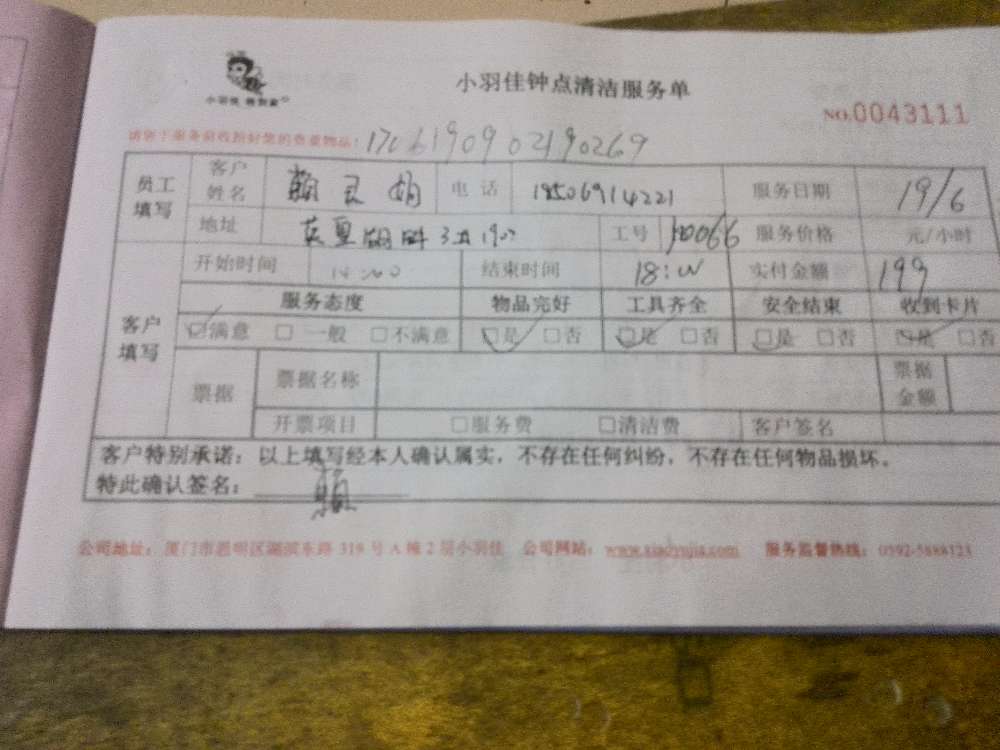 小羽佳钟点清洁服务单
小羽佳
NO.0043111
1706190902190269
员工填写 客户姓名 电话 服务日期 19/6
地址 工号 服务价格 元/小时
开始时间 结束时间 18:00 实付金额 199
客户填写 服务态度 物品完好 工具齐全 安全结束 收到卡片
☑满意 □一般 □不满意 ☑是 □否 ☑是 □否 ☑是 □否 ☑是 □否
票据 票据名称 票据金额
开票项目 □服务费 □清洁费 客户签名
客户特别承诺：以上填写经本人确认属实，不存在任何纠纷，不存在任何物品损坏。
特此确认签名：
公司地址：厦门市思明区湖滨东路 319 号 A 栋 2 层小羽佳 公司网站：www.xiaoyujia.com 服务监督热线：